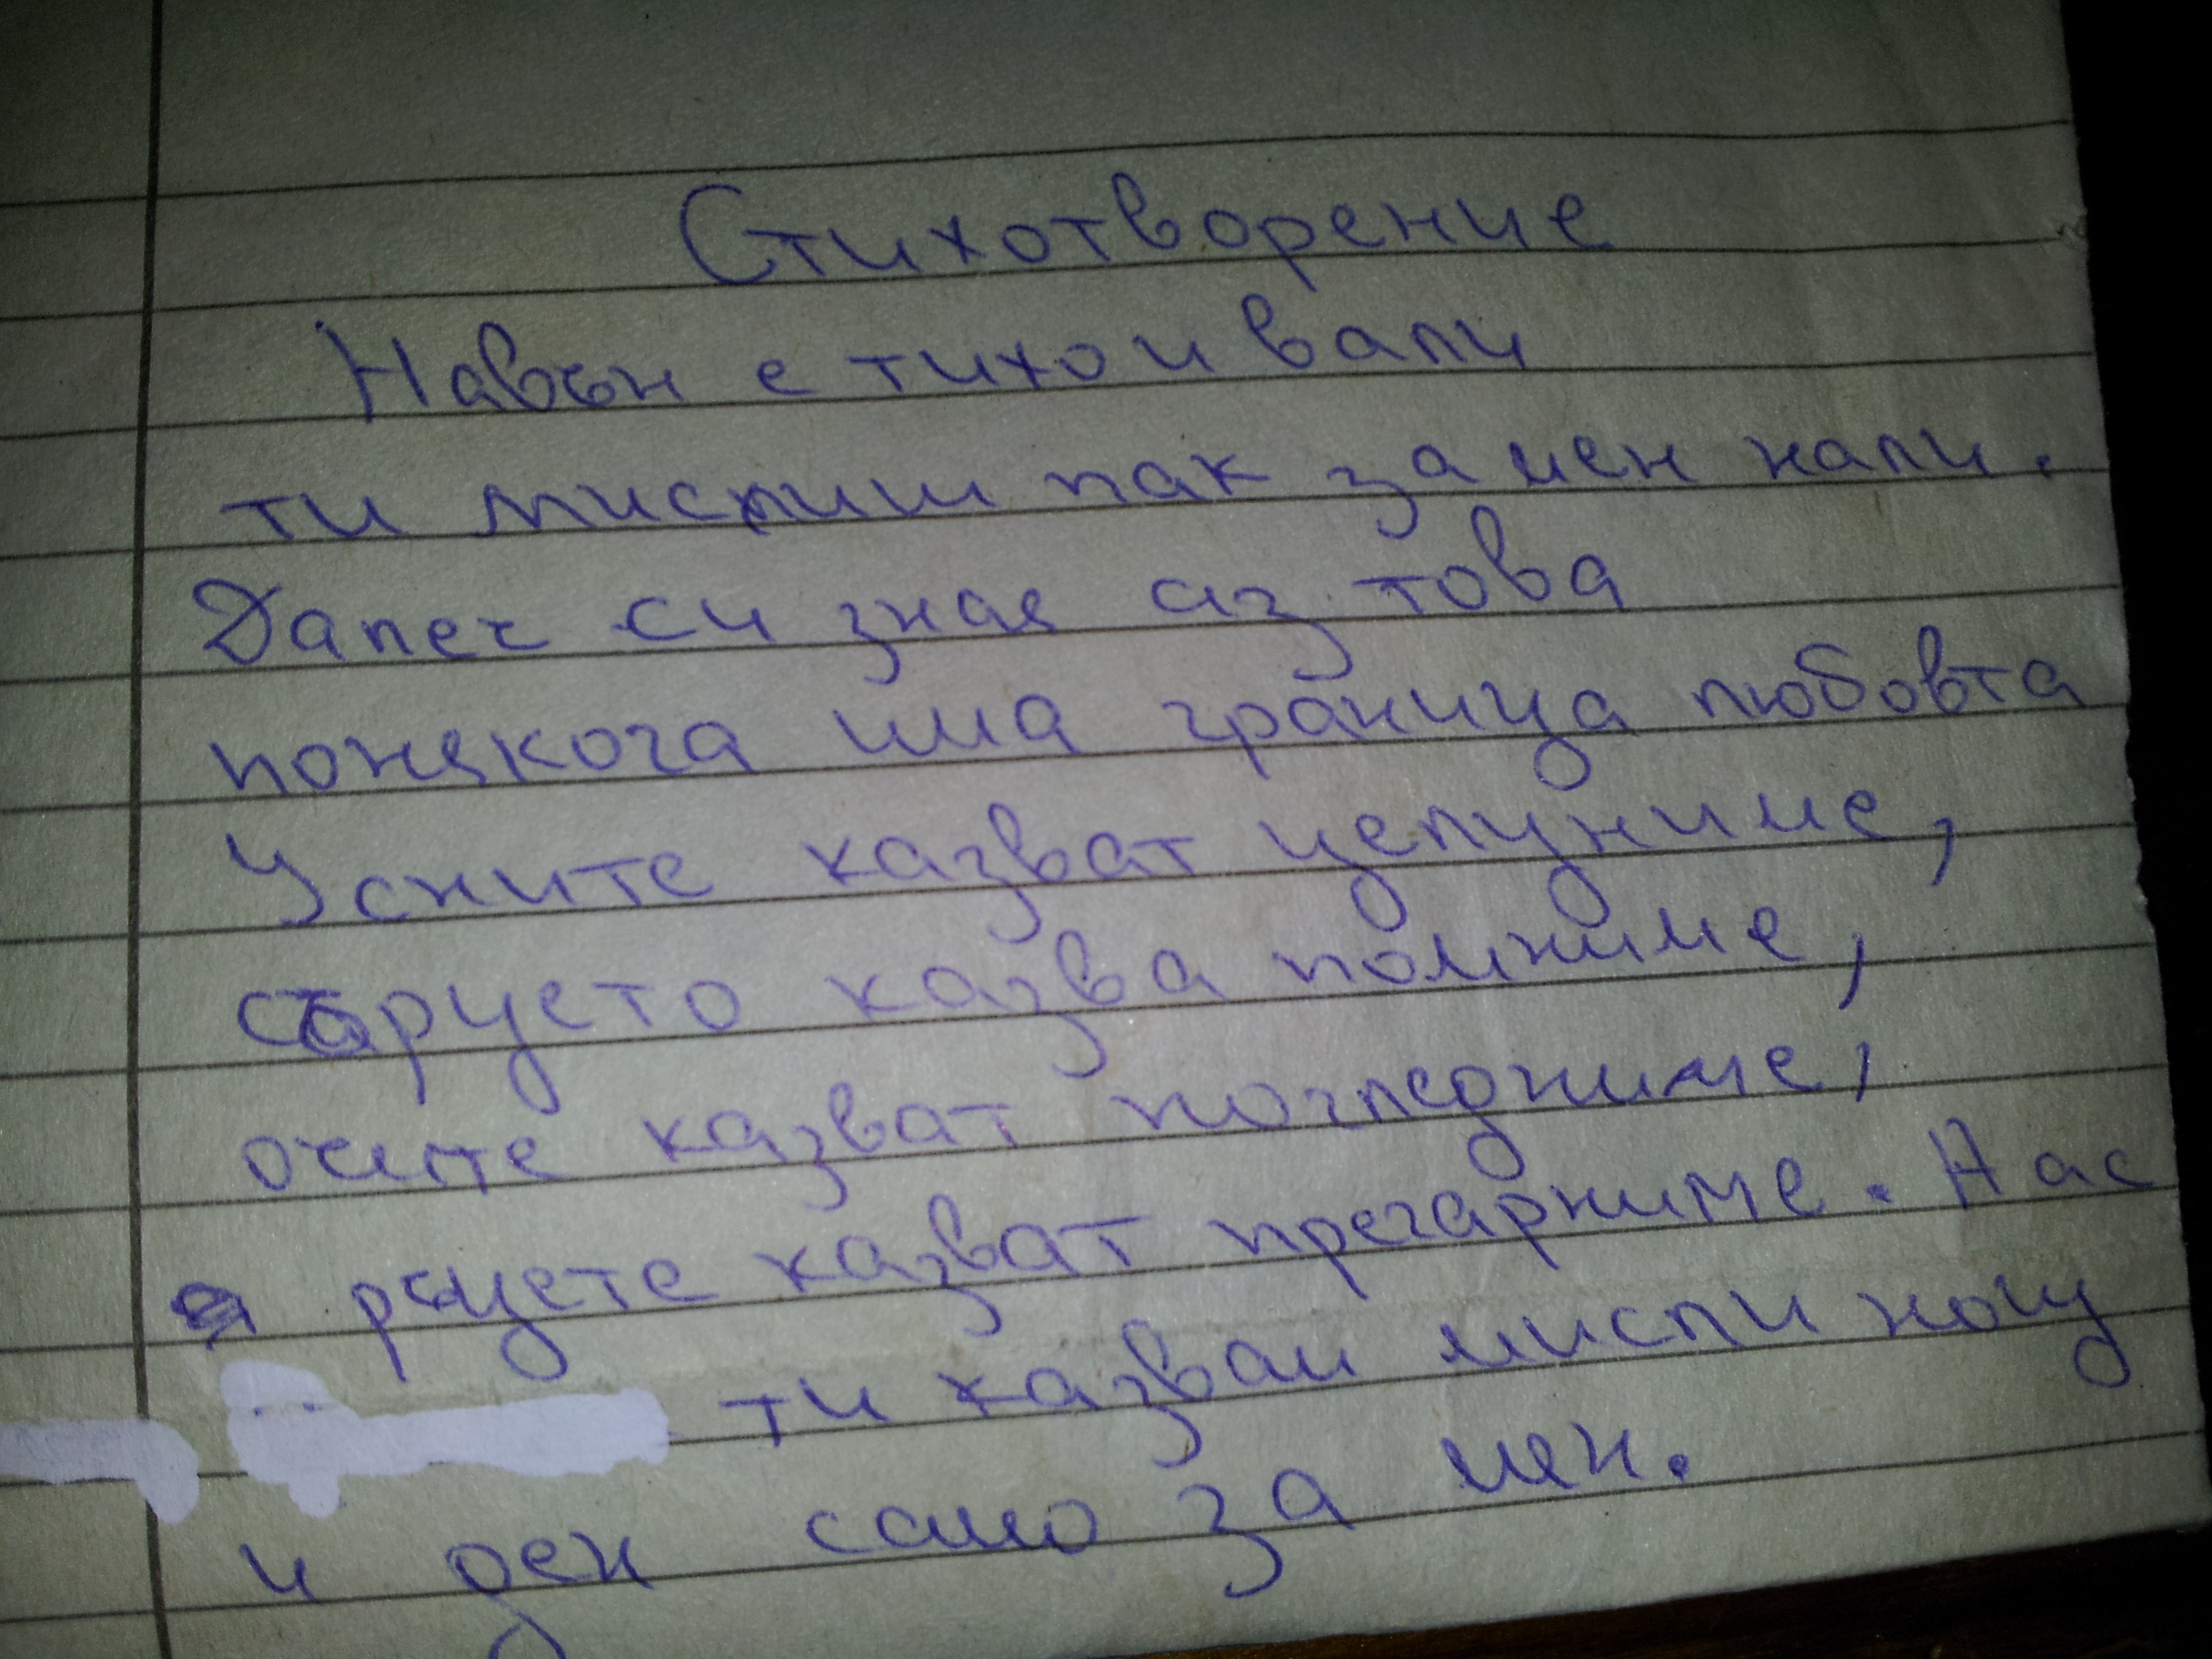 Стихотворение
Навън е тихо и вали
ти мислиш пак за мен нали.
Далеч си зная аз това
понякога има граница любовта
Усните казват целуниме,
сърцето казва помниме,
очите казват погледниме,
а рацете казват прегарниме. Нас
ти казваш мисли нощ
и ден само за мен.